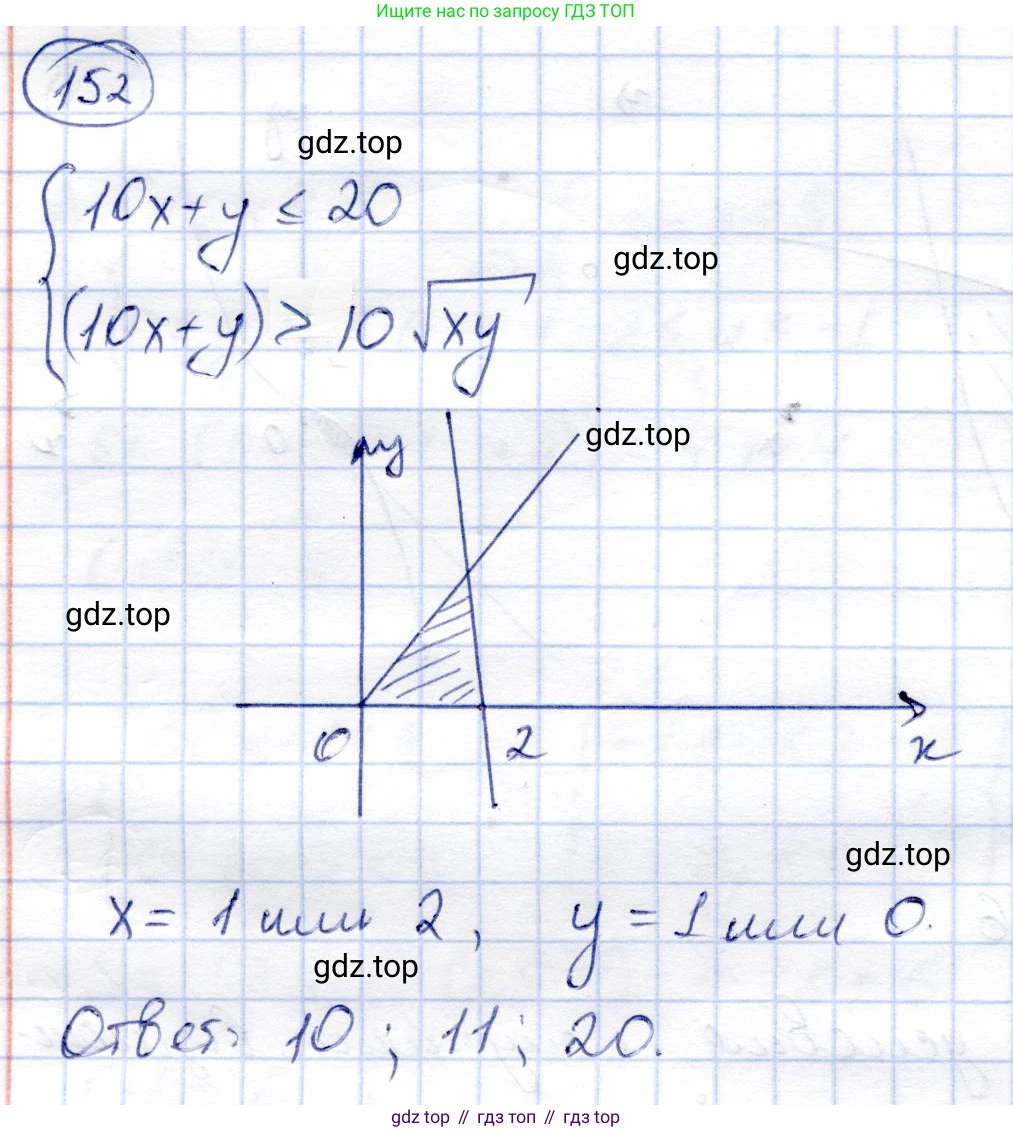 Ищите нас по запросу ГДЗ ТОП
152
gdz.top
10x+y ≤ 20
gdz.top
(10x+y) > 10 √xy
y
gdz.top
gdz.top
0 2 x
gdz.top
x = 1 или 2, y = 1 или 0.
gdz.top
Ответ: 10 ; 11 ; 20.
gdz top // гдз топ // gdz top